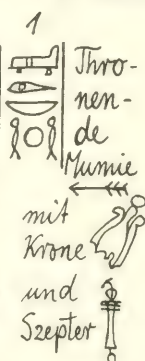 1
Thro-
nen-
de
Mumie
mit
Krone
und
Szepter